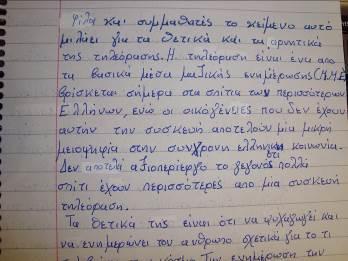 Φίλοι και συμμαθητές το κείμενο αυτό
μιλάει για τα θετικά και τα αρνητικά
της τηλεόρασης. Η τηλεόραση είναι ένα απο
τα βασικά μέσα μαζικής ενημέρωσης (Μ.Μ.Ε)
βρίσκεται σήμερα στα σπίτια των περισσότερων
Ελλήνων, ενώ οι οικόγένειες που δεν έχουν
αυτην την συσκευή αποτελούν μία μικρή
μειοψηφία στην συγχρονη ελληνικη κοινωνία.
Δεν αποτελά αξιοπερίεργο το γεγονός ότι πολλά
σπίτι έχουν περισσότερες απο μία συσκευή
τηλεόραση.
Τα θετικά της είναι ότι να ψυχαγωγεί και
να ενημερώνει τον ανθρωπο σχετικά για το τι
Την ενημέρωση την